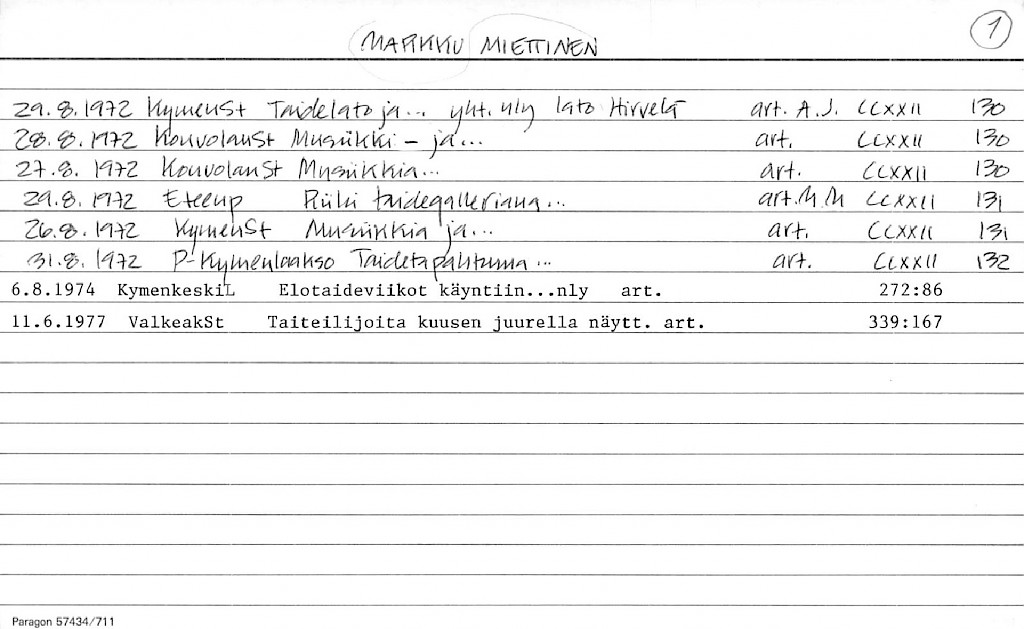 MARKKU MIETTINEN 1
29.8.1972 KymenSt Taidelato ja... yht. nly lato Hirvelä art. A.J. CCXXII 130
28.8.1972 KouvolanSt Musiikki - ja... art. CCXXII 130
27.8.1972 KouvolanSt Musiikkia... art. CCXXII 130
29.8.1972 Eteenp Riihi taidegalleriana... art. M.M CCXXII 131
26.8.1972 KymenSt Musiikkia ja... art. CCXXII 131
31.8.1972 P-Kymenlaakso Taidetapahtuma... art. CCXXII 132
6.8.1974 KymenkeskiL Elotaideviikot käyntiin...nly art. 272:86
11.6.1977 ValkeakSt Taiteilijoita kuusen juurella näytt. art. 339:167
Paragon 57434/711